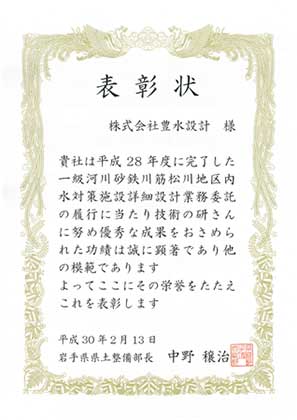 表彰状
株式会社豊水設計 様
貴社は平成28年度に完了した
一級河川砂鉄川筋松川地区内
水対策施設詳細設計業務委託
の履行に当たり技術の研さん
に努め優秀な成果をおさめら
れた功績は誠に顕著であり他
の模範であります
よってここにその栄誉をたたえ
これを表彰します
平成30年2月13日
岩手県県土整備部長 中野 穣治